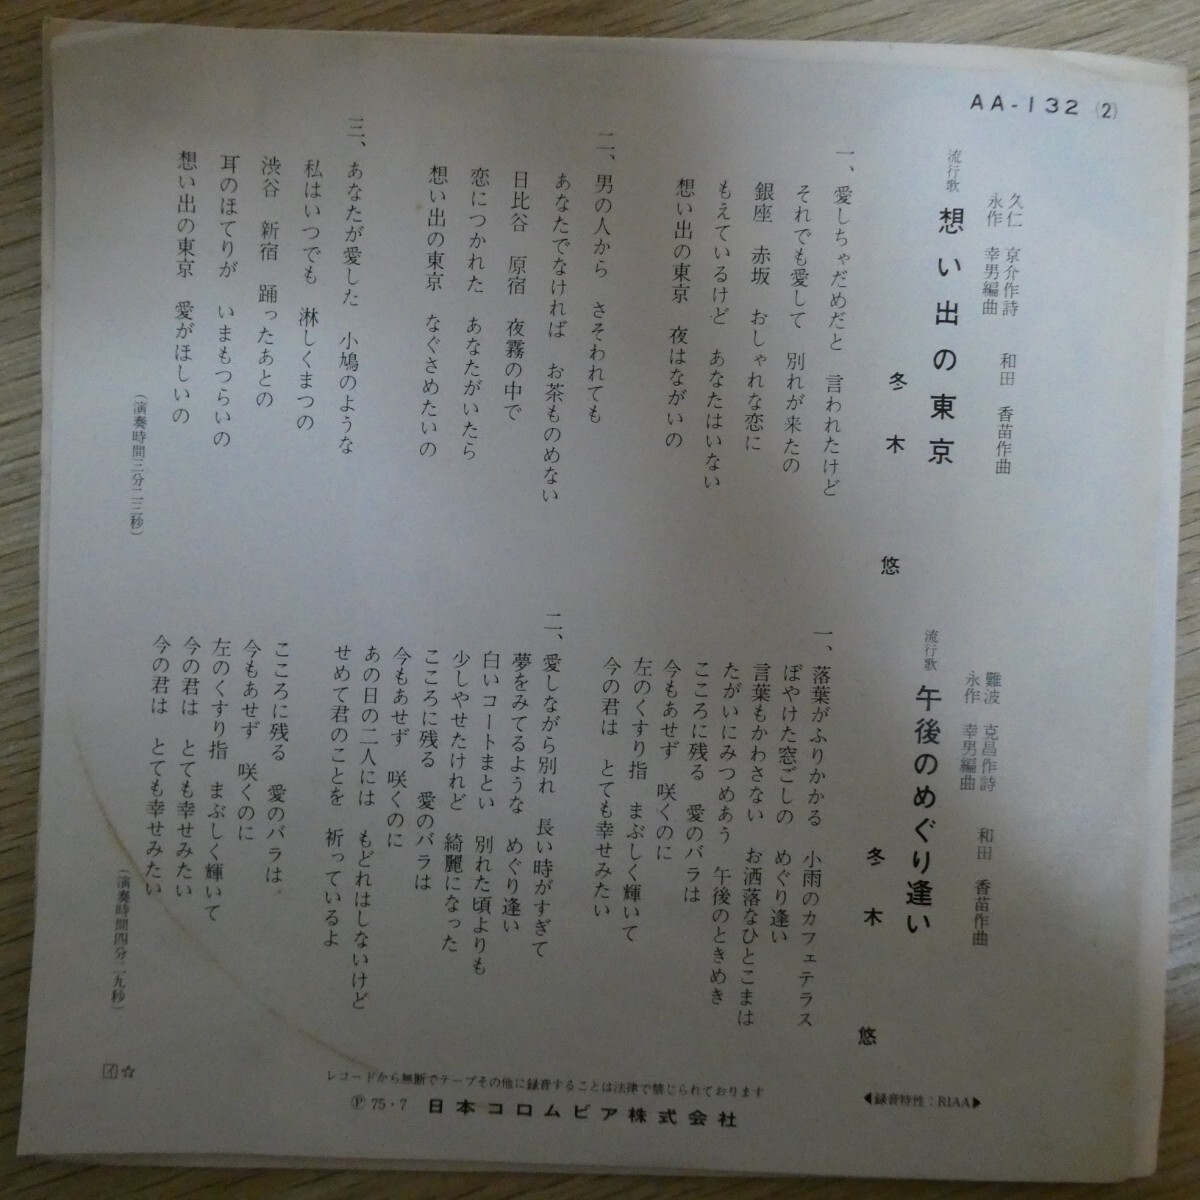 AA-132 (2)
久仁 京介作詩 和田 香苗作曲
永作 幸男編曲
流行歌 想い出の東京
冬木 悠
一、愛しちゃだめだと 言われたけど
それでも愛して 別れが来たの
銀座 赤坂 おしゃれな恋に
もえているけど あなたはいない
想い出の東京 夜はながいの
二、男の人から さそわれても
あなたでなければ お茶ものめない
日比谷 原宿 夜霧の中で
恋につかれた あなたがいたら
想い出の東京 なぐさめたいの
三、あなたが愛した 小鳩のような
私はいつでも 淋しくまつの
渋谷 新宿 踊ったあとの
耳のほてりが いまもつらいの
想い出の東京 愛がほしいの
(演奏時間三分二三秒)
難波 克昌作詩 和田 香苗作曲
永作 幸男編曲
流行歌 午後のめぐり逢い
冬木 悠
一、落葉がふりかかる 小雨のカフェテラス
ぼやけた窓ごしの めぐり逢い
言葉もかわさない お洒落なひとこまは
たがいにみつめあう 午後のときめき
こころに残る 愛のバラは
今もあせず 咲くのに
左のくすり指 まぶしく輝いて
今の君は とても幸せみたい
二、愛しながら別れ 長い時がすぎて
夢をみてるような めぐり逢い
白いコートまとい 別れた頃よりも
少しやせたけれど 綺麗になった
こころに残る 愛のバラは
今もあせず 咲くのに
あの日の二人には もどれはしないけど
せめて君のことを 祈っているよ
こころに残る 愛のバラは
今もあせず 咲くのに
左のくすり指 まぶしく輝いて
今の君は とても幸せみたい
今の君は とても幸せみたい
(演奏時間四分二九秒)
レコードから無断でテープその他に録音することは法律で禁じられております
Ⓟ 75・7 日本コロムビア株式会社
◀録音特性：RIAA▶
イ☆